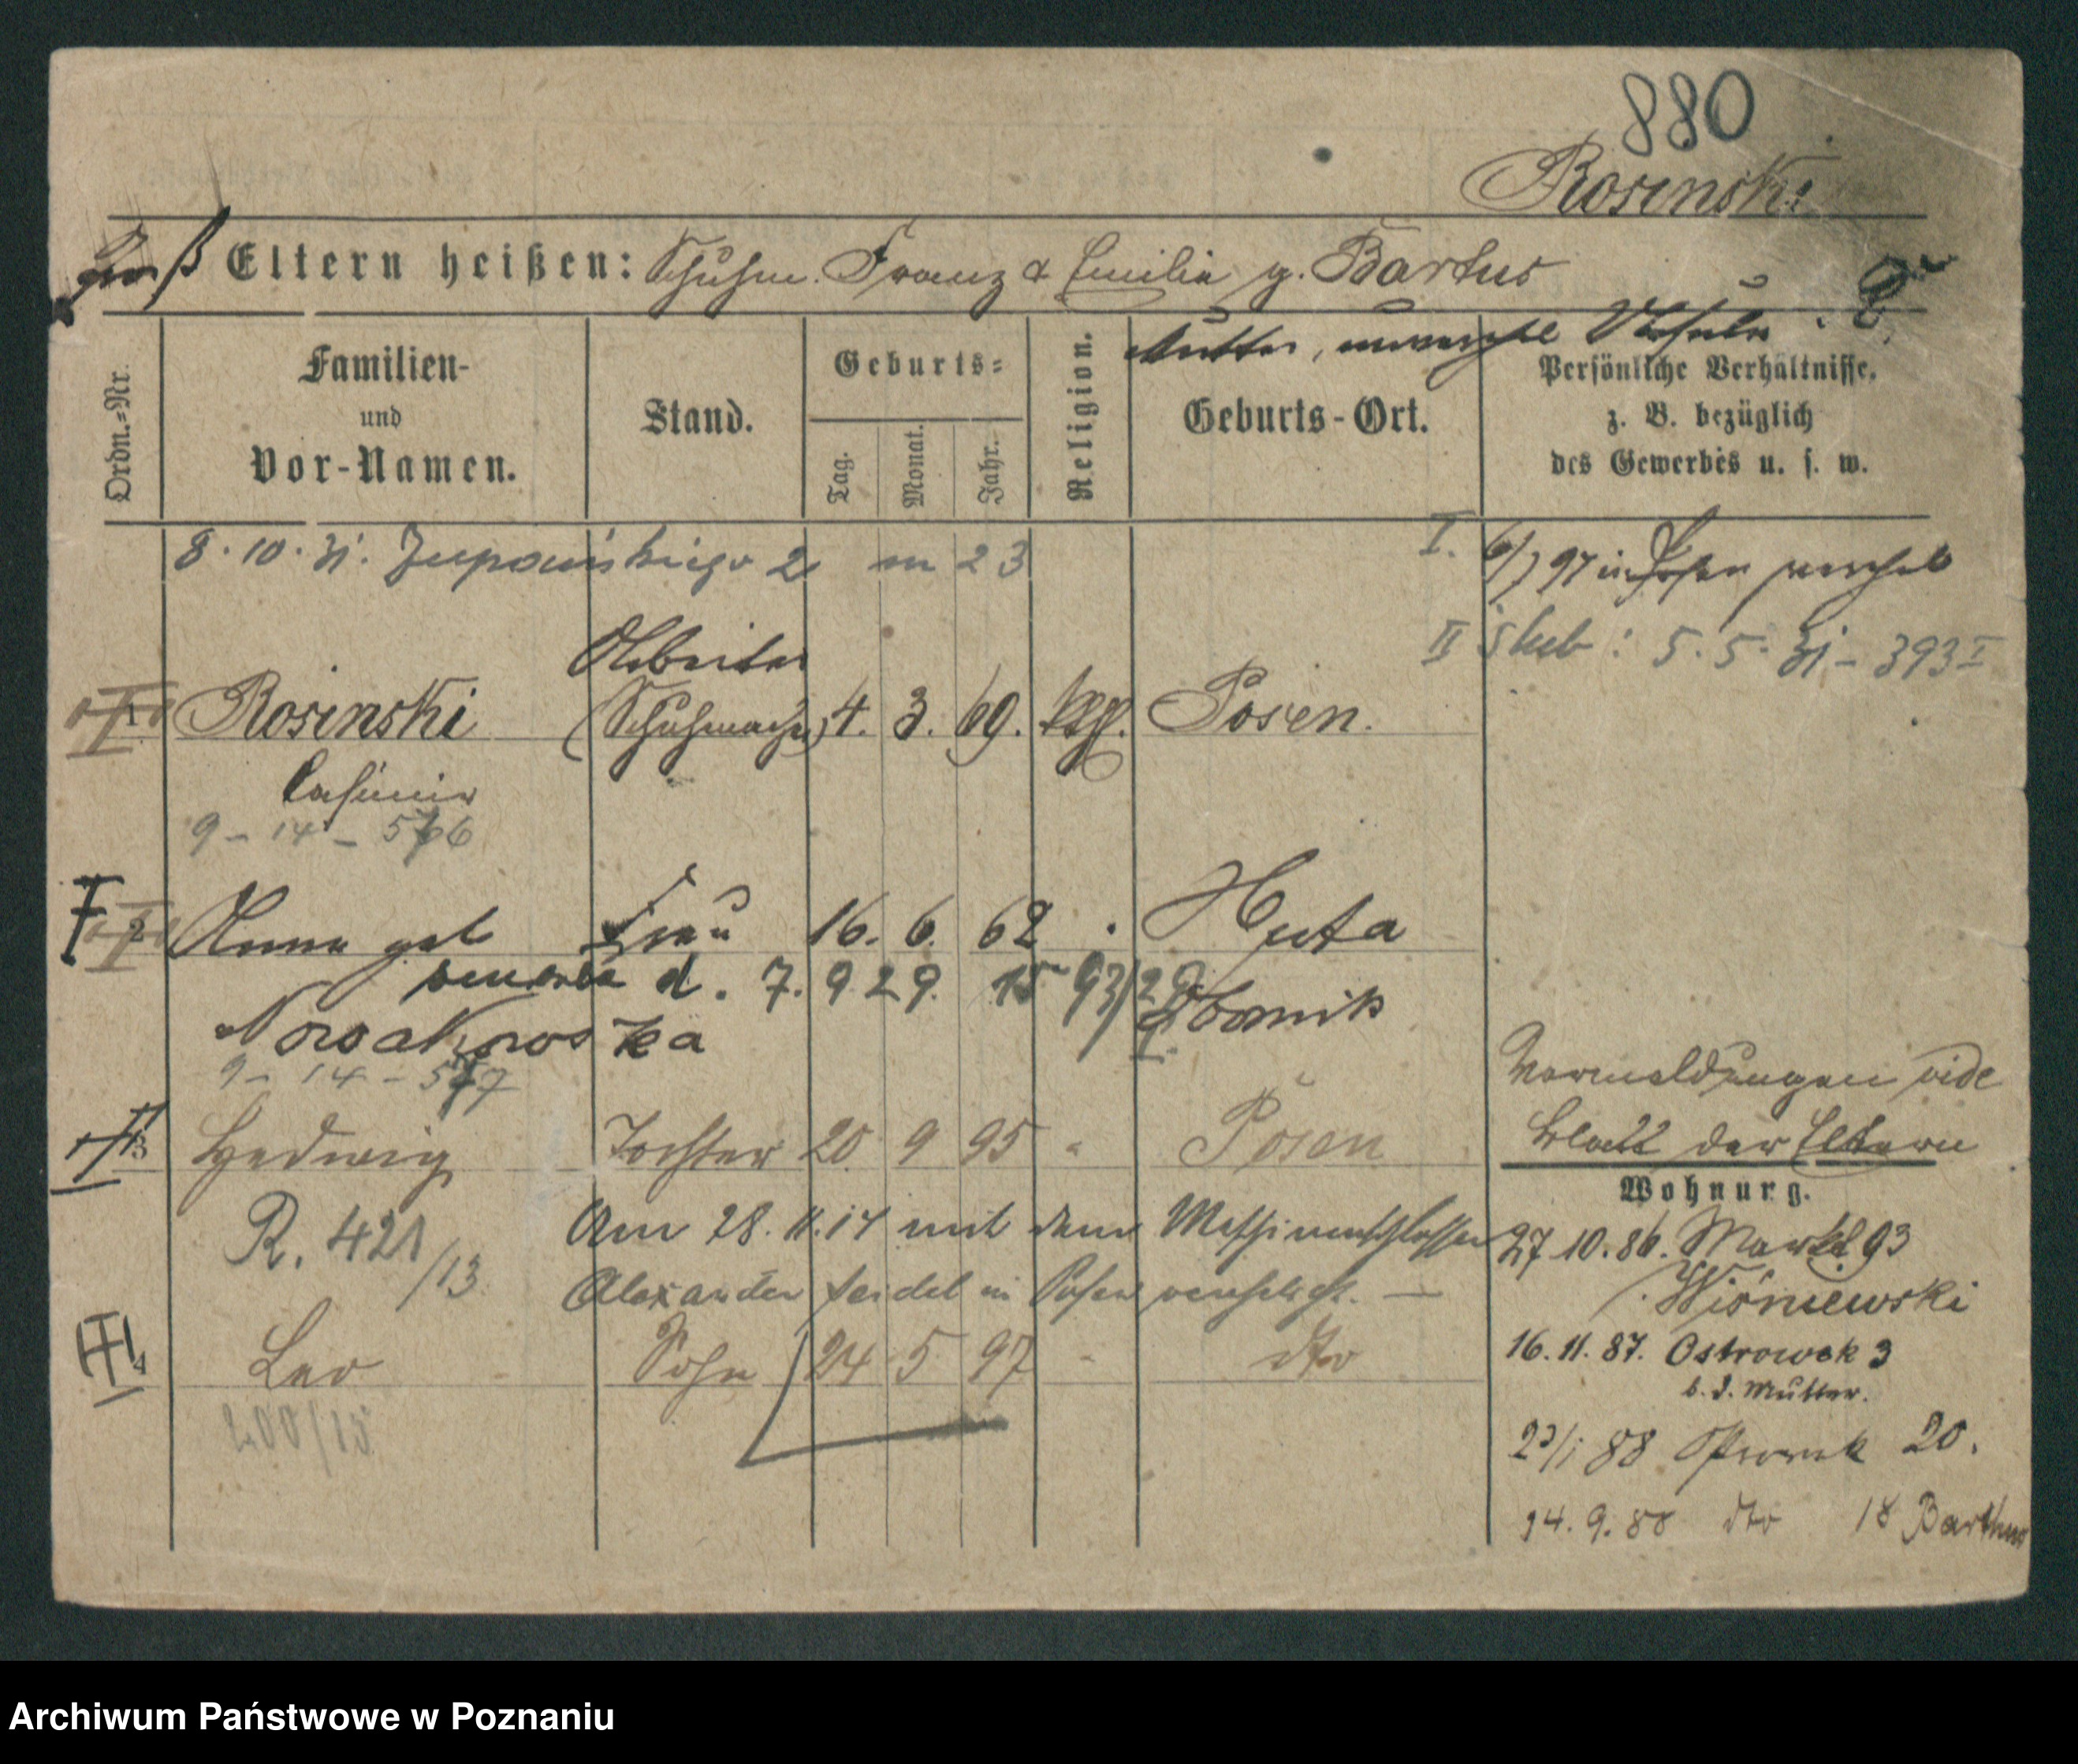 880
Rosinski
Eltern heißen: Schuhm. Franz & Emilia g. Bartus
Mutter,
Ordn.=Nr.
Familien-
und
Vor-Namen.
Stand.
Geburts=
Tag.
Monat.
Jahr.
Religion.
Geburts-Ort.
Persönliche Verhältnisse,
z. B. bezüglich
des Gewerbes u. s. w.
8. 10. 31. Żupańskiego 2 m 23
I. 6/7 97 in Posen
II ślub: 5. 5. 31 - 393 I
Arbeiter
1 Rosinski (Schuhmacher) 4. 3. 69. Posen.
Casimir
9 - 14 - 576
2 Anna geb Frau 16. 6. 62 Huta
zmarła d. 7. 9 29. 93/29
Nowakowska Obornik
9 - 14 - 577
3 Hedwig Tochter 20 9 95 " Posen
R. 421/13
Am 28. 11. 14 mit dem Maschinenschlosser
Alexander Seidel in Posen verehelicht. —
4 Leo Sohn 24 5 97 - dto
200/15
Vormeldungen vide
Blatt der Eltern
Wohnung.
27 10. 86. Markt 93
Wiśniewski
16. 11. 87. Ostrowek 3
b. d. Mutter.
23/1 88 Ostrowek 20.
14. 9. 88 dto 18 Barthus
Archiwum Państwowe w Poznaniu